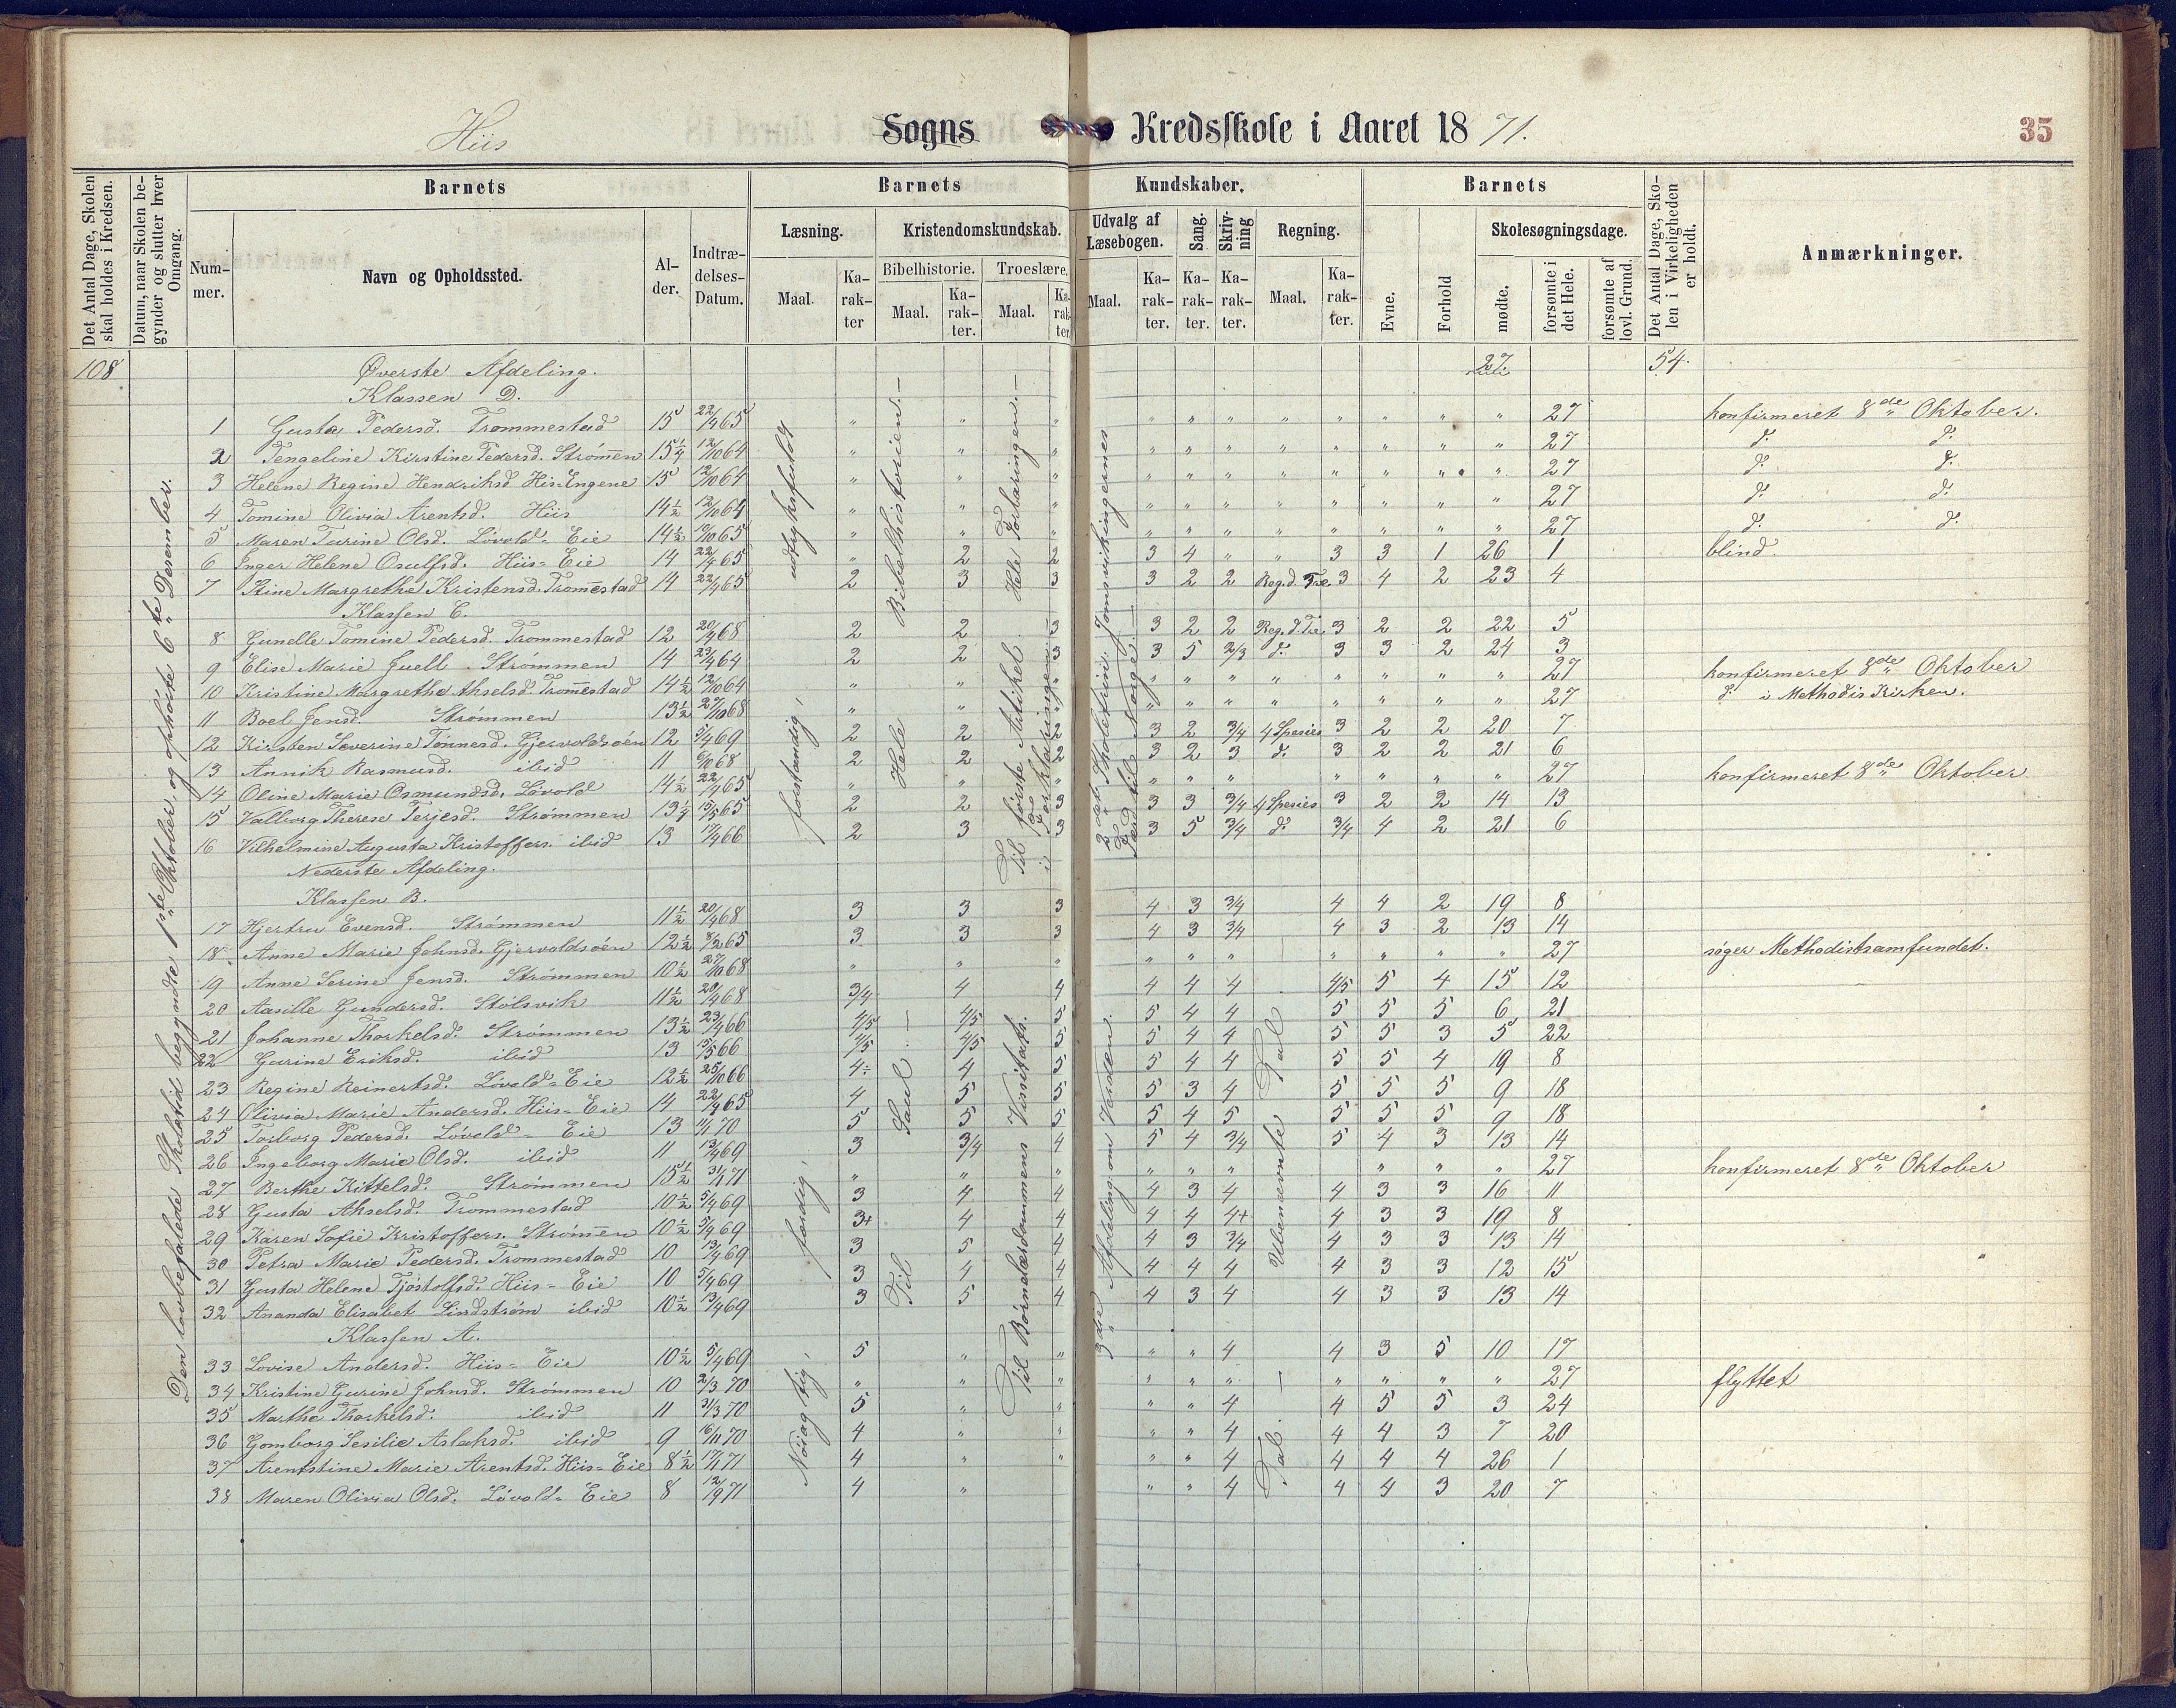 Hiis Sogns Kredsskole i Aaret 1871. 35
Det Antal Dage, Skolen skal holdes i Kredsen.
Datum, naar Skolen begynder og slutter hver Omgang.
Barnets Barnets Kundskaber. Barnets
Det Antal Dage, Skolen i Virkeligheden er holdt.
Anmærkninger.
Nummer. Navn og Opholdssted. Alder. Indtrædelses-Datum.
Læsning. Kristendomskundskab. Udvalg af Læsebogen. Sang. Skrivning Regning. Evne. Forhold Skolesøgningsdage.
Bibelhistorie. Troeslære.
Maal. Karakter Maal. Karakter. Maal. Karakter Maal. Karakter. Karakter. Karakter. Maal. Karakter. mødte. forsømte i det Hele. forsømte af lovl. Grund.
108 Øverste Afdeling. 27 54.
Klassen D.
1 Gusta Pedersd. Trommestad 15 22/4 65 " " " " " " " " " " " 27 konfirmeret 8de Oktober.
2 Tengeline Kirstine Pedersd. Strømen 15 1/4 12/10 64 " " " " " " " " " " " 27 d: d:
3 Helene Regine Hendriksd. His Engene 15 12/10 64 " " " " " " " " " " " 27 d: d:
4 Tomine Olivia Arentsd. Hiis 14 1/2 12/10 64 " " " " " " " " " " " 27 d: d:
5 Maren Turine Olsd. Lóvold-Eie 14 1/2 10/10 65 " " " " " " " " " " " 27 d: d:
6 Inger Helene Osulfsd. Hiis-Eie 14 22/4 65 " 2 2 3 4 " " 3 3 1 26 1 blind.
7 Stine Margrethe Kristensd. Tromestad 14 22/4 65 2 3 3 3 2 2 Reg.d. Tre. 3 4 2 23 4
Klassen C.
8 Gunelle Tomine Pedersd. Trommestad 12 20/4 68 2 2 3 3 2 2 Reg.d.Tre. 3 2 2 22 5
9 Elise Marie Juell Strómmen 14 23/4 64 2 2 3 3 5 2/3 d: 3 3 2 24 3
10 Kristine Margrethe Akselsd. Tromestad 14 1/2 12/10 64 " " " " " " " " " " " 27 konfirmeret 8de Oktober
11 Boel Jensd. Strómmen 13 1/2 27/10 68 " " " " " " " " " " " 27 d: i Methodis Kirken.
12 Kirsten Severine Tónnesd. Gjervoldsóen 12 5/4 69 2 2 2 3 2 3/4 4 Spesies 3 2 2 20 7
13 Annik Rasmusd. ibid 11 6/10 68 2 2 2 3 2 3 d: 3 2 2 21 6
14 Oline Marie Osmundsd. Lóvold 14 1/2 22/4 65 " " " " " " " " " " 27 konfirmeret 8de Oktober
15 Valborg Therese Terjesd. Strómmen 13 1/4 15/5 65 2 2 3 3 3 3/4 4 Spesies 3 2 2 14 13
16 Vilhelmine Augusta Kristoffers. ibid 13 17/4 66 2 3 3 3 5 3/4 d: 3/4 4 2 21 6
Nederste Afdeling.
Klassen B.
17 Hjertru Evensd. Strómmen 11 1/2 20/4 68 3 3 3 4 3 3/4 4 4 2 19 8
18 Anne Marie Johnsd. Gjervoldsóen 12 1/2 8/2 65 3 3 3 4 3 3/4 4 3 2 13 14
19 Anne Serine Jensd. Strómmen 10 1/2 27/10 68 " " " " " " " " " " 27 søger Methodistsamfundet.
20 Aasille Gundersd. Stólsvik 11 1/2 20/4 68 3/4 4 4 4 4 4 4/5 5 4 15 12
21 Johanne Thorkelsd. Strómmen 13 1/2 23/4 66 4/5 4/5 5 5 4 4 5 5 5 6 21
22 Gurine Eriksd. ibid 13 15/5 66 4/5 4/5 5 5 4 4 5 5 3 5 22
23 Regine Reinertsd. Lóvold-Eie 12 1/2 25/10 66 4÷ 4 5 5 4 4 5 5 4 19 8
24 Olivia Marie Andersd. Hiis-Eie 14 22/4 65 4 5 5 5 3 4 5 5 5 9 18
25 Torborg Pedersd. Lóvold-Eie 13 11/1 70 5 5 5 5 4 5 5 5 5 9 18
26 Ingeborg Marie Olsd. ibid 11 13/4 69 3 3/4 4 5 4 3/4 5 4 3 13 14
27 Berthe Kittelsd. Strómmen 15 1/2 31/1 71 " " " " " " " " " 27 konfirmeret 8de Oktober
28 Gusta Akselsd. Trommestad 10 1/2 5/4 69 3 4 4 4 3 4 4 3 3 16 11
29 Karen Sofie Kristoffers. Strómen 10 1/2 5/4 69 3+ 4 4 4 4 4+ 4 3 3 19 8
30 Petra Marie Pedersd. Trommestad 10 13/4 69 3 5 4 4 3 3/4 4 3 3 13 14
31 Gusta Helene Tjóstolfsd. Hiis-Eie 10 5/4 69 3 4 4 4 4 4 4 3 3 12 15
32 Ananda Elisabet Lindstróm ibid 10 1/2 13/4 69 3 5 4 4 3 4 4 3 3 13 14
Klassen A.
33 Lovise Andersd. Hiis-Eie 10 1/2 5/4 69 5 " " " " 4 4 3 5 10 17
34 Kristine Gurine Johnsd. Strómmen 10 2/3 70 " " " " " " " " " " 27 flyttet
35 Marthe Thorkelsd. ibid 11 31/3 70 5 " " " " 4 4 5 5 3 24
36 Gomborg Sesilie Aslaksd. ibid 9 16/11 70 4 " " " " 4 4 4 3 7 20
37 Arentstine Marie Arentsd. Hiis-Eie 8 1/2 17/1 71 4 " " " " 4 4 4 4 26 1
38 Maren Olivia Olsd. Lóvold-Eie 8 12/9 71 4 " " " 4 4 4 3 20 7
Den lovbefalede Skoletid begyndte 1ste Oktober, og ophórte 6te Desember.
udtryksfuldt
forstandig,
færdig,
Nóiagtig,
Hele Bibelhistorien.—
Til Saul.—
Hele Forklaringen.—
Til fórste Artikel i Forklaringen.
Til Børnelærdommens Vissitats.
2det Skoletrin. Jomsvikingernes Færd til Norge.—
3die Afdeling: om Verden.
Ubenævnte Tal
Tal.—